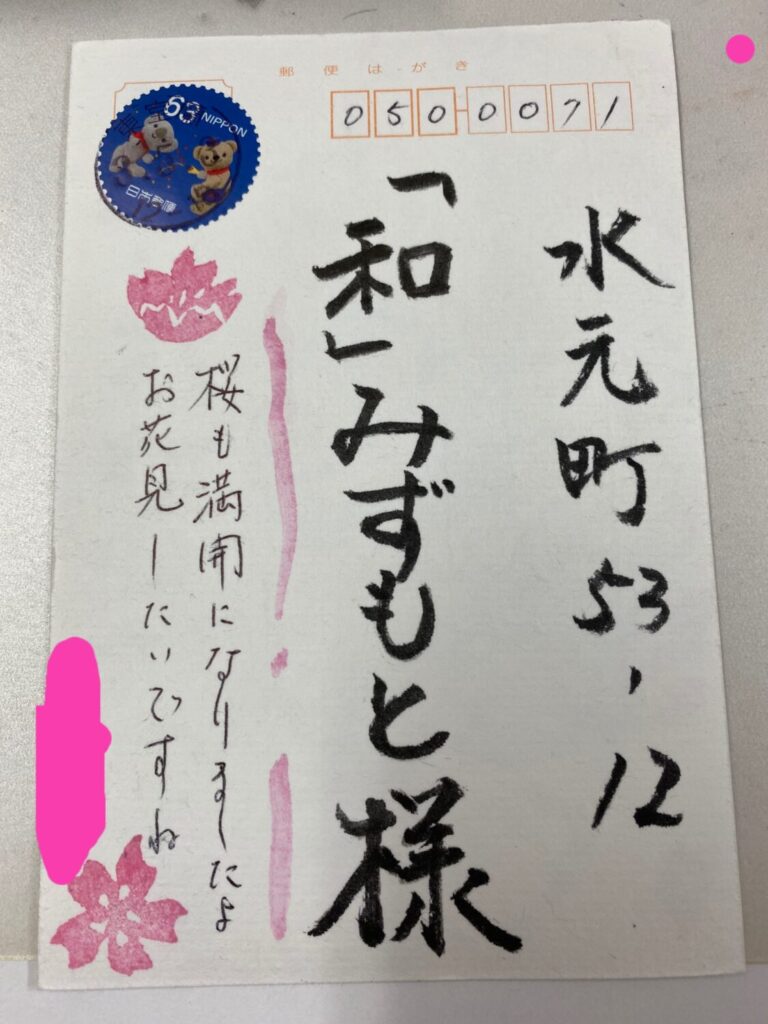 郵便はがき
050-0071
63 NIPPON
日本郵便
水元町53-12
「和」みずもと様
桜も満開になりましたよ
お花見ーたいですね